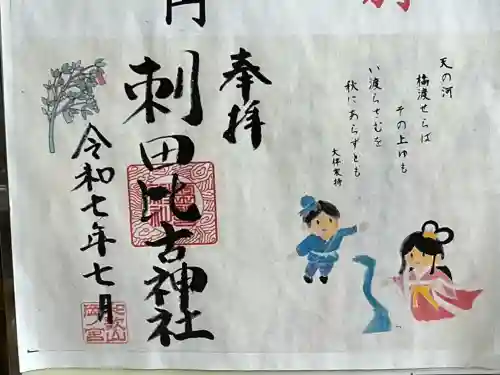 天の河
橋渡せらば
その上ゆも
い渡らさむを
秋にあらずとも
大伴家持
奉拝
刺田比古神社
令和七年七月